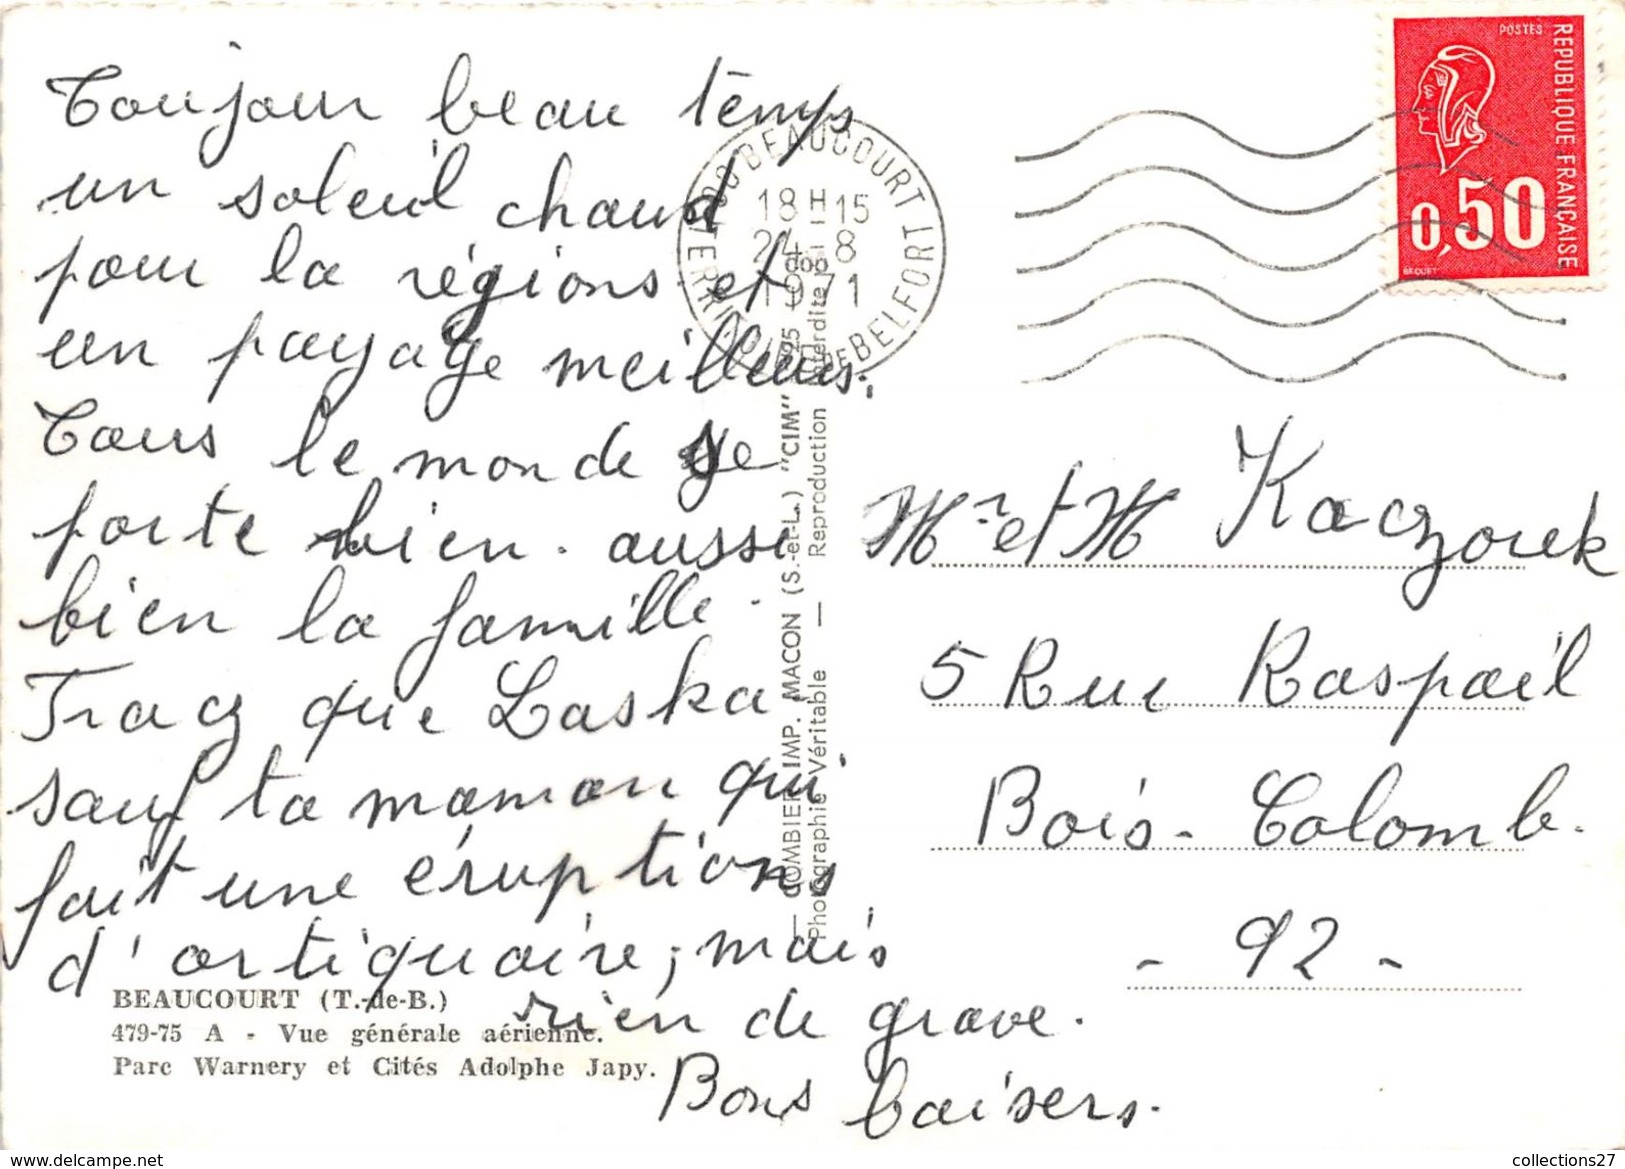 Toujour beau temps
un soleil chaud
pour la régions et
un payage meilleurs.
Tous le monde se
porte bien. aussi
bien la famille.
Tracz que Laska
sauf ta maman qui
fait une éruptions
d'ortiquaire, mais
rien de grave.
Bons baisers.
BEAUCOURT (T.-de-B.)
479-75 A - Vue générale aérienne.
Parc Warnery et Cités Adolphe Japy.
— COMBIER IMP. MACON (S.-et-L.) "CIM"
Photographie Véritable — Reproduction interdite
BEAUCOURT
TERRITOIRE DE BELFORT
18 H 15
24 - 8
1971
POSTES
REPUBLIQUE FRANÇAISE
0,50
BEQUET
Mr et M Kaczorek
5 Rue Raspail
Bois-Colomb.
- 92 -
collections27